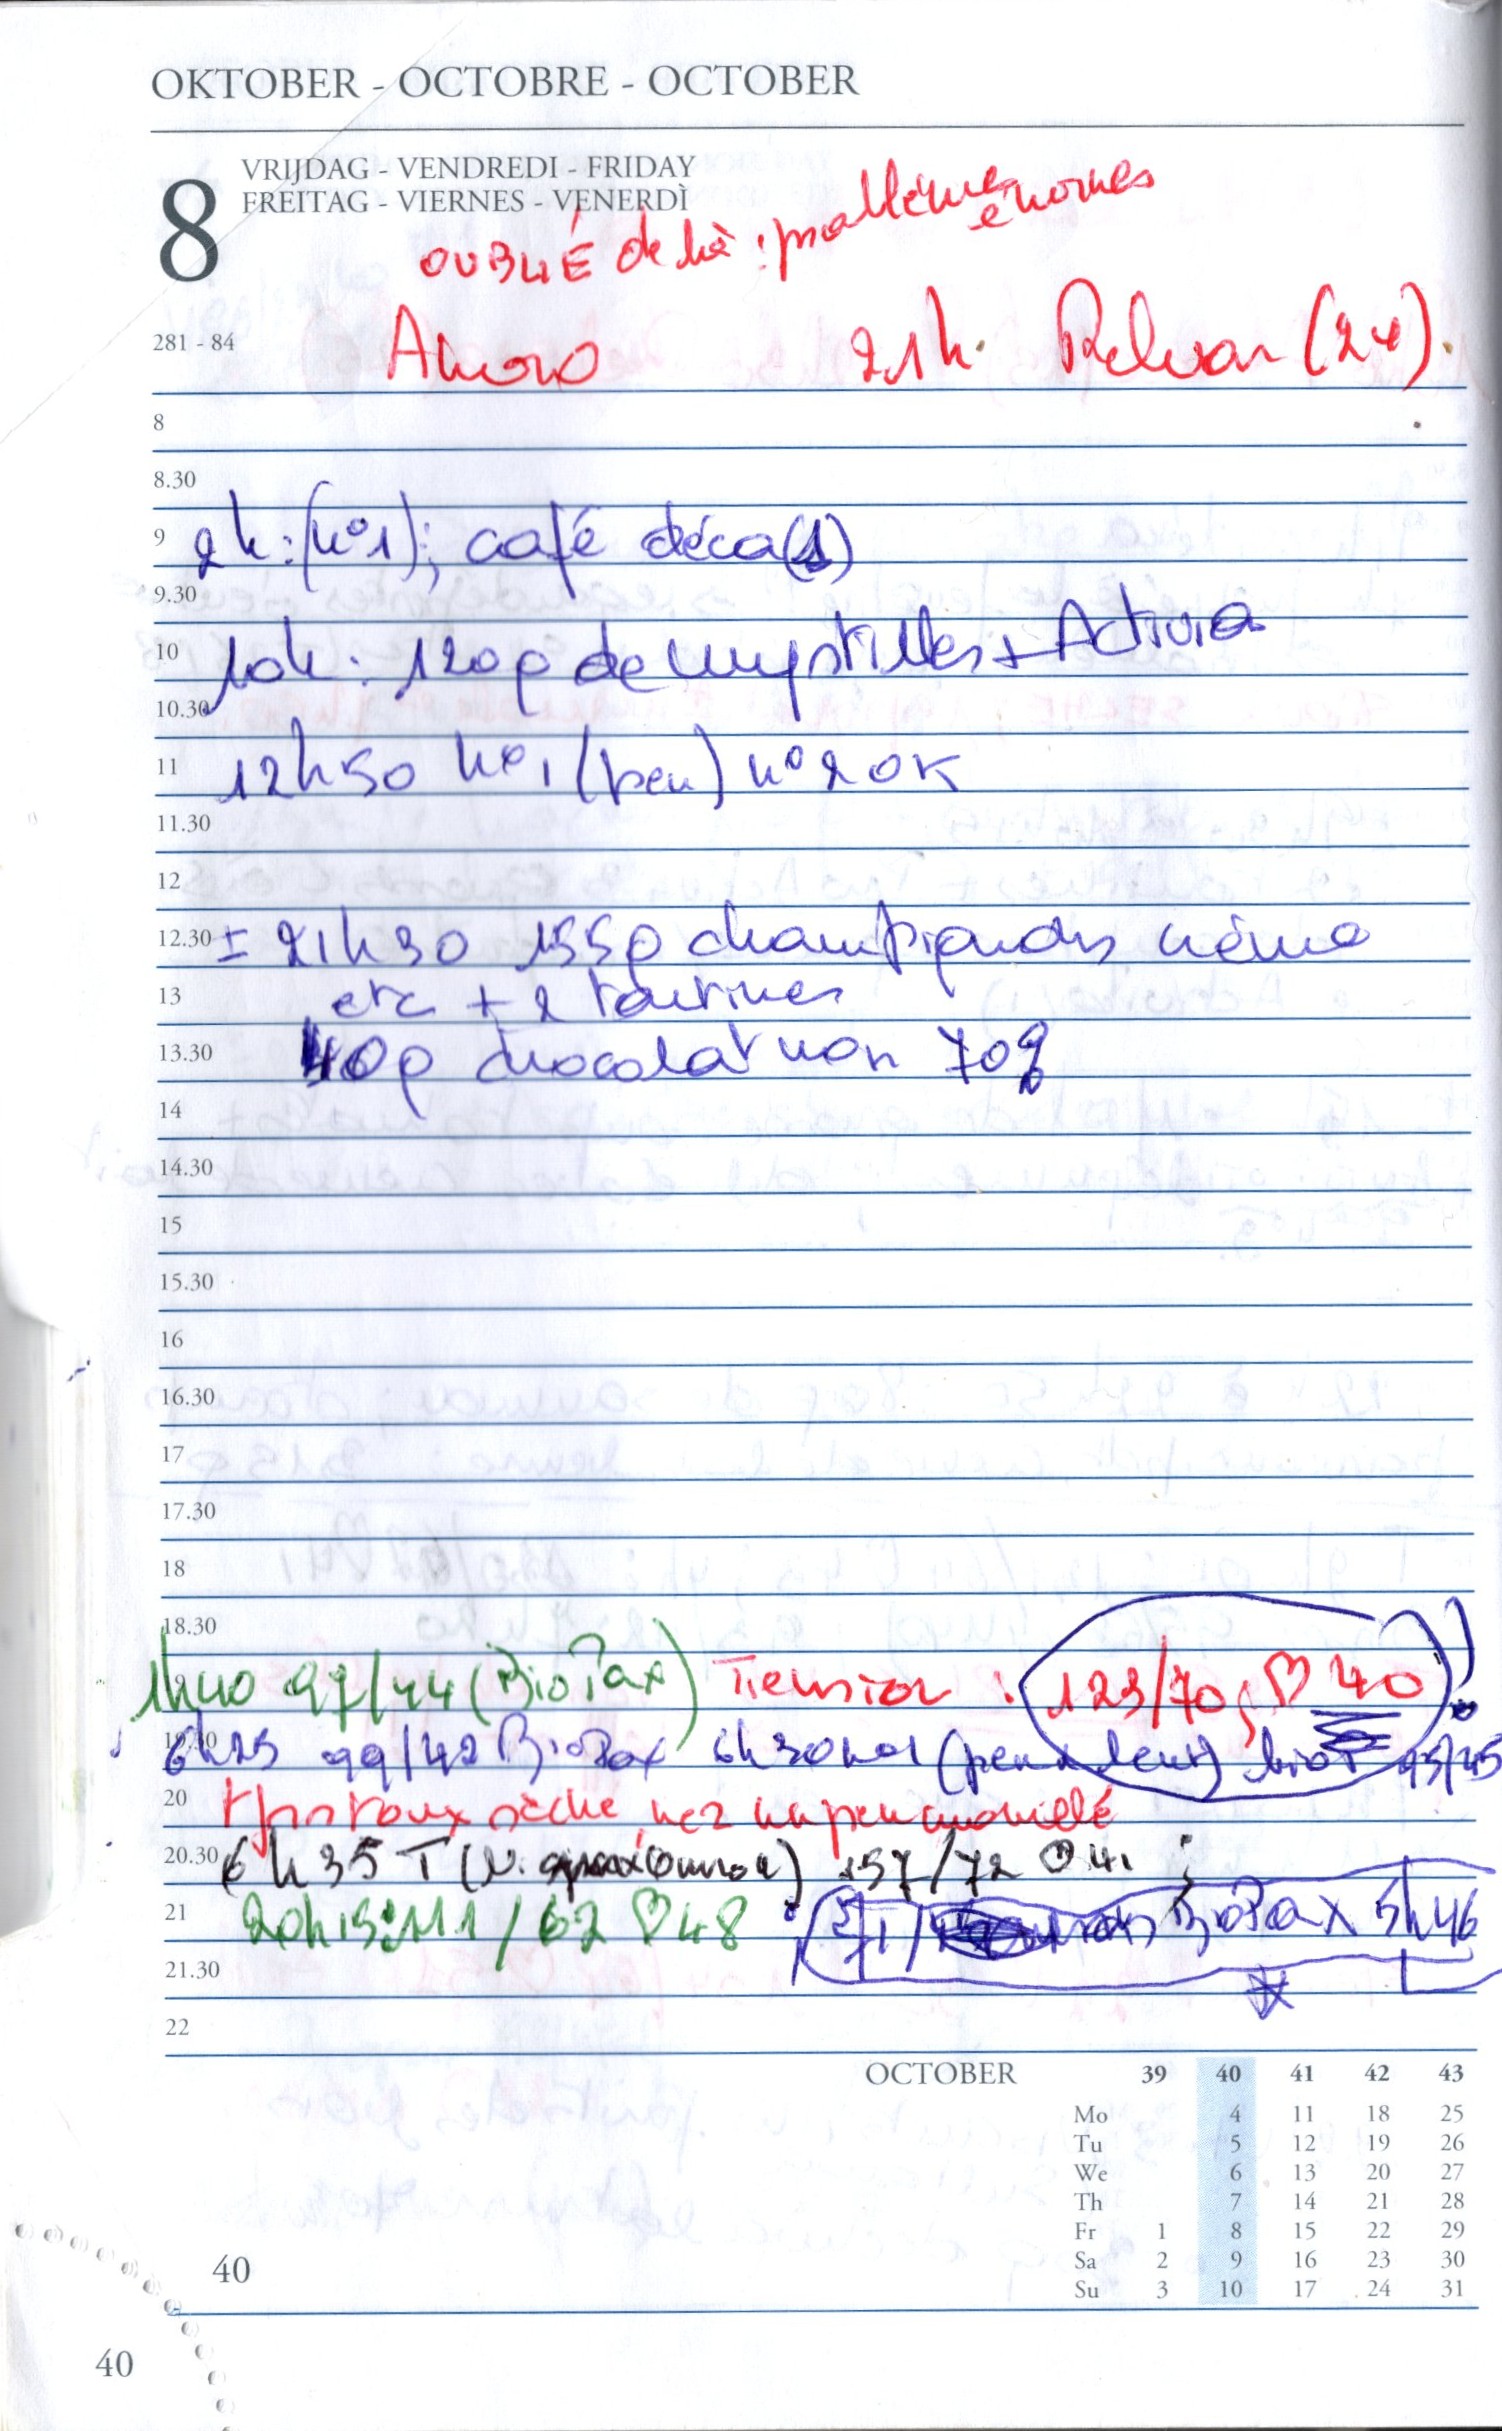 OKTOBER - OCTOBRE - OCTOBER
8
VRIJDAG - VENDREDI - FRIDAY
FREITAG - VIERNES - VENERDÌ
OUBLIÉ de
énormes
281 - 84
21h. Relvar (24).
8
8.30
9
2h: (n°1); café déca(1)
9.30
10
10h: 120g de myrtilles + Activia
10.30
11
12h50 n°1 (peu) n° 2 OK
11.30
12
12.30
± 21h30 155g champignons crème
13
etc + 2 tartines
13.30
40g chocolat noir 70%
14
14.30
15
15.30
16
16.30
17
17.30
18
18.30
1h40 97/44 (BioPax) Tension : 123/70, ♡ 40
6h25 99/42 BioPax
20
toux sèche, nez un peu mouillé
20.30
6h35 T 157/72
21
20h15: 111/62 ♡ 48
BioPax 5h46
21.30
22
OCTOBER 39 40 41 42 43
Mo 4 11 18 25
Tu 5 12 19 26
We 6 13 20 27
Th 7 14 21 28
Fr 1 8 15 22 29
Sa 2 9 16 23 30
Su 3 10 17 24 31
40
40